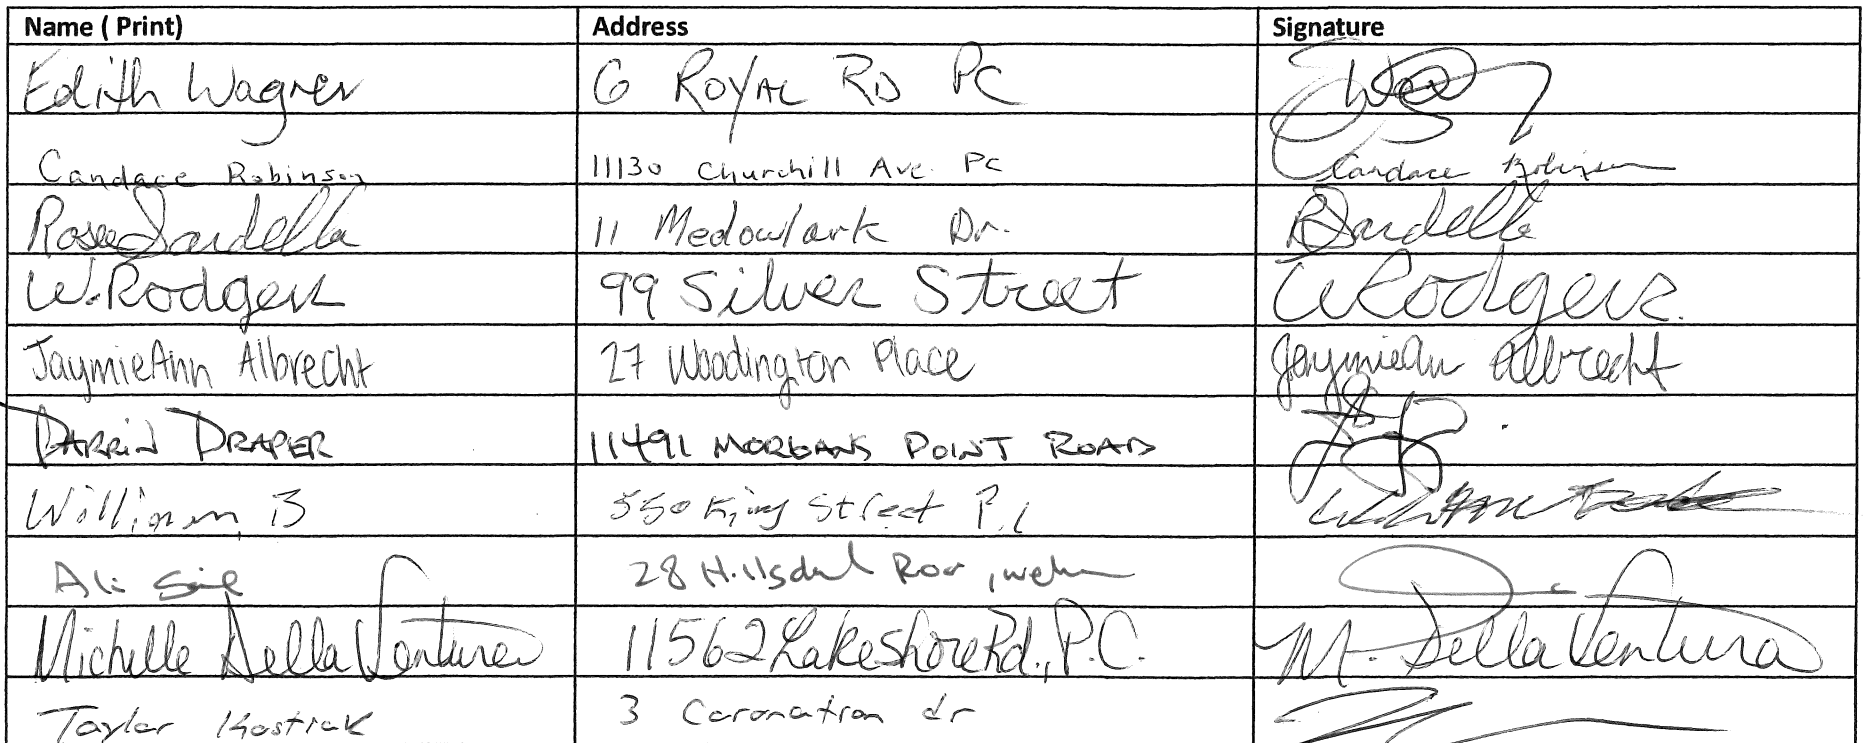 Name ( Print) Address Signature
Edith Wagner 6 ROYAL RD PC
Candace Robinson 11130 Churchill Ave. PC Candace Robinson
Rose Sardella 11 Medowlark Dr. R Sardella
W. Rodgers 99 Silver Street W Rodgers
JaymieAnn Albrecht 27 Woodington Place JaymieAnn Albrecht
DARRIN DRAPER 11491 MORGANS POINT ROAD
William B 550 King Street P.C
Ali 28 Hillsdal
Michelle DellaVentura 11562 Lakeshore Rd., P.C. M. DellaVentura
Taylor Kostiak 3 Coronation dr